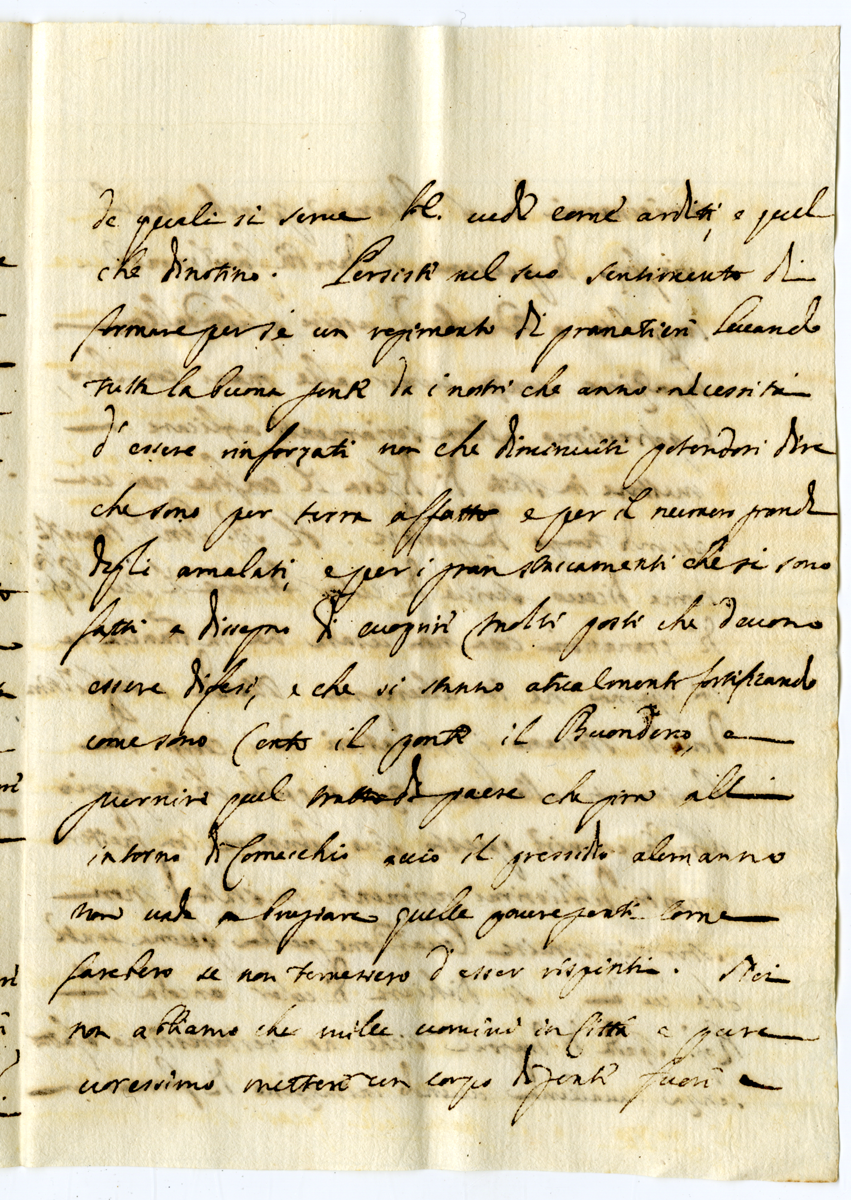 de quali si serve V.E. vede come arditi, e quel
che dinotino. Persisti nel suo sentimento di
formare per sé un regimento di granatieri levando
tutta la buona gente da i nostri che anno necessità
d'essere rinforzati non che diminuiti potendosi dire
che sono per terra affatto e per il numero grande
degli amalati, e per i gran staccamenti che si sono
fatti a dissegno di coprire molti posti che devono
essere difesi, e che si stanno atualmente fortificando
come sono Cento il ponte il Bondeno, e
guernire quel tratto di paese che gira all
intorno di Comacchio acciò il pressidio alemanno
non vada a bruggiare quelle povere genti come
farebero se non temessero d'esser rispinti. Noi
non abbiamo che mille uomini in Città e pure
voressimo mettere un corpo di gente fuori e